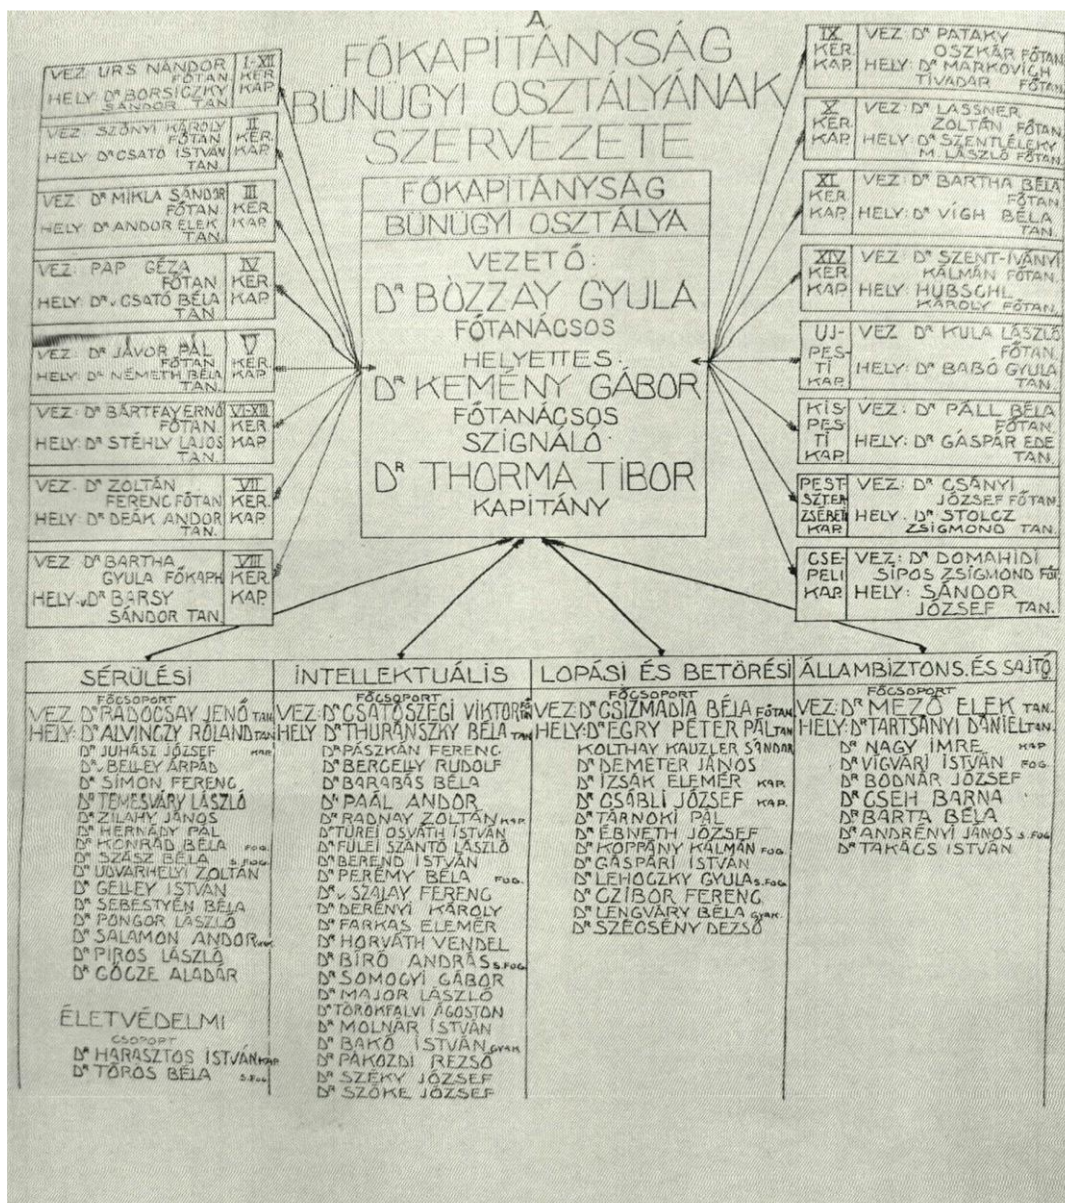 A
FŐKAPITÁNYSÁG
BÜNÜGYI OSZTÁLYÁNAK
SZERVEZETE
VEZ: URS NÁNDOR
FŐTAN
HELY: Dᴿ BORSICZKY
SÁNDOR TAN
I-XII
KER
KAP.
VEZ: SZŐNYI KÁROLY
FŐTAN
HELY: Dᴿ CSATÓ ISTVÁN
TAN.
II
KER.
KAP.
VEZ: Dᴿ MIKLA SÁNDOR
FŐTAN
HELY: Dᴿ ANDOR ELEK
TAN.
III
KER.
KAP.
VEZ: PAP GÉZA
FŐTAN
HELY: Dᴿ v CSATÓ BÉLA
TAN
IV
KER
KAP
VEZ: Dᴿ JÁVOR PÁL
FŐTAN
HELY: Dᴿ NÉMETH BÉLA
TAN.
V
KER
KAP
VEZ: Dᴿ BÁRTFAY ERNŐ
FŐTAN
HELY: Dᴿ STÉHLY LAJOS
TAN.
VI-XIII
KER
KAP
VEZ: Dᴿ ZOLTÁN
FERENC FŐTAN
HELY: Dᴿ DEÁK ANDOR
TAN.
VII
KER.
KAP
VEZ: Dᴿ BARTHA
GYULA FŐKAPH
HELY: v Dᴿ BARSY
SÁNDOR TAN
VIII
KER.
KAP.
FŐKAPITÁNYSÁG
BÜNÜGYI OSZTÁLYA
VEZETŐ:
Dᴿ BÖZZAY GYULA
FŐTANÁCSOS
HELYETTES:
Dᴿ KEMÉNY GÁBOR
FŐTANÁCSOS
SZIGNÁLÓ:
Dᴿ THORMA TIBOR
KAPITÁNY
IX
KER.
KAP.
VEZ: Dᴿ PATAKY
OSZKÁR FŐTAN
HELY: Dᴿ MARKOVICH
TIVADAR FŐTAN.
X
KER
KAP
VEZ: Dᴿ LASSNER
ZOLTÁN FŐTAN
HELY: Dᴿ SZENTLÉLEKY
M. LÁSZLÓ FŐTAN.
XI
KER
KAP.
VEZ: Dᴿ BARTHA BÉLA
FŐTAN
HELY: Dᴿ VÍGH BÉLA
TAN.
XIV
KER
KAP
VEZ: Dᴿ SZENT-IVÁNYI
KÁLMÁN FŐTAN.
HELY: HUBSCHL
KÁROLY FŐTAN.
UJ-
PES-
TI
KAP.
VEZ Dᴿ KULA LÁSZLÓ
FŐTAN.
HELY: Dᴿ BABÓ GYULA
TAN.
KIS
PES
TI
KAP.
VEZ: Dᴿ PÁLL BÉLA
FŐTAN.
HELY: Dᴿ GÁSPÁR EDE
TAN.
PEST-
SZTER
ZSÉBETI
KAP
VEZ: Dᴿ CSÁNYI
JÓZSEF FŐTAN.
HELY. Dᴿ STOLCZ
ZSIGMOND TAN.
CSE-
PELI
KAP.
VEZ: Dᴿ DOMAHIDI
SIPOS ZSIGMOND FŐT.
HELY: SÁNDOR
JÓZSEF TAN.
SÉRÜLÉSI
FŐCSOPORT
VEZ Dᴿ RADOCSAY JENŐ TAN.
HELY: Dᴿ ALVINCZY ROLAND TAN
Dᴿ JUHÁSZ JÓZSEF KAP.
Dᴿ v BELLEY ÁRPÁD
Dᴿ SIMON FERENC
Dᴿ TEMESVÁRY LÁSZLÓ
Dᴿ ZILAHY JÁNOS
Dᴿ HERNÁDY PÁL
Dᴿ KONRÁD BÉLA FOG.
Dᴿ SZÁSZ BÉLA S.FOG.
Dᴿ UDVARHELYI ZOLTÁN
Dᴿ GELLEY ISTVÁN
Dᴿ SEBESTYÉN BÉLA
Dᴿ PONGOR LÁSZLÓ
Dᴿ SALAMON ANDOR
Dᴿ PIROS LÁSZLÓ
Dᴿ GŐCZE ALADÁR
ÉLETVÉDELMI
CSOPORT
Dᴿ HARASZTOS ISTVÁN KAP.
Dᴿ TÖRÖS BÉLA S.FOG.
INTELLEKTUÁLIS
FŐCSOPORT
VEZ: Dᴿ CSATÓSZEGI VIKTOR FŐTAN
HELY Dᴿ THURÁNSZKY BÉLA TAN
Dᴿ PÁSZKÁN FERENC
Dᴿ BERGELLY RUDOLF
Dᴿ BARABÁS BÉLA
Dᴿ PAÁL ANDOR
Dᴿ RADNAY ZOLTÁN KAP.
Dᴿ TÜREI OSVÁTH ISTVÁN
Dᴿ FÜLEI SZÁNTÓ LÁSZLÓ
Dᴿ BEREND ISTVÁN
Dᴿ PERÉMY BÉLA FOG.
Dᴿ v SZALAY FERENC
Dᴿ DERÉNYI KÁROLY
Dᴿ FARKAS ELEMÉR
Dᴿ HORVÁTH VENDEL
Dᴿ BÍRÓ ANDRÁS S.FOG.
Dᴿ SOMOGYI GÁBOR
Dᴿ MAJOR LÁSZLÓ
Dᴿ TÖRÖKFALVI ÁGOSTON
Dᴿ MOLNÁR ISTVÁN
Dᴿ BAKÓ ISTVÁN GYAK.
Dᴿ PÁKOZDI REZSŐ
Dᴿ SZÉKY JÓZSEF
Dᴿ SZŐKE JÓZSEF
LOPÁSI ÉS BETÖRÉSI
FŐCSOPORT
VEZ: Dᴿ CSIZMADIA BÉLA FŐTAN.
HELY: Dᴿ EGRY PÉTER PÁL TAN
KOLTHAY KAUZLER SÁNDOR
Dᴿ DEMETER JÁNOS
Dᴿ IZSÁK ELEMÉR KAP.
Dᴿ CSÁBLI JÓZSEF KAP.
Dᴿ TÁRNOKI PÁL
Dᴿ ÉBNETH JÓZSEF
Dᴿ KOPPÁNY KÁLMÁN FOG.
Dᴿ GÁSPÁRI ISTVÁN
Dᴿ LEHOCZKY GYULA S.FOG.
Dᴿ CZIBOR FERENC
Dᴿ LENGVÁRY BÉLA GYAK.
Dᴿ SZÉCSÉNY DEZSŐ
ÁLLAMBIZTONS. ÉS SAJTÓ
FŐCSOPORT
VEZ: Dᴿ MEZŐ ELEK TAN.
HELY: Dᴿ TARTSÁNYI DÁNIEL TAN.
Dᴿ NAGY IMRE KAP
Dᴿ VÍGVÁRI ISTVÁN FOG.
Dᴿ BODNÁR JÓZSEF
Dᴿ CSEH BARNA
Dᴿ BARTA BÉLA
Dᴿ ANDRÉNYI JÁNOS S.FOG.
Dᴿ TAKÁCS ISTVÁN